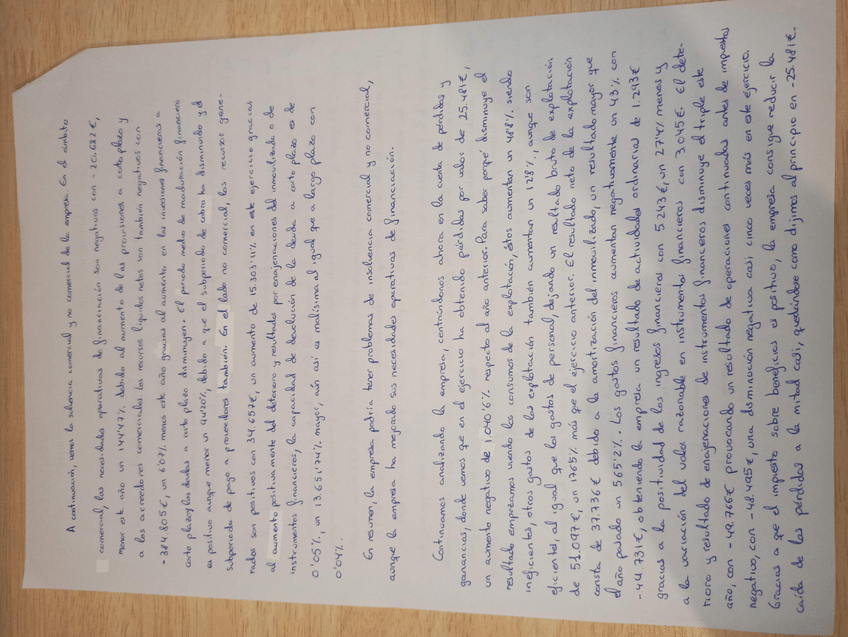 A continuación, vemos la solvencia comercial y no comercial de la empresa. En el ámbito
comercial, las necesidades operativas de financiación son negativas con -20.622€,
menor este año un 144'47% debido al aumento de las provisiones a corto plazo y
a los acreedores comerciales. Los recursos líquidos netos son también negativos con
-384.805€, un 6'07% menos este año gracias al aumento en las inversiones financieras a
corto plazo y las deudas a corto plazo disminuyen. El periodo medio de maduración financiero
es positivo aunque menor un 94'20%, debido a que el subperiodo de cobro ha disminuido y el
subperiodo de pago a proveedores también. En el lado no comercial, los recursos gene-
rados son positivos con 34.657€, un aumento de 15.303'11% en este ejercicio gracias
al aumento positivamente del deterioro y resultados por enajenaciones del inmovilizado o de
instrumentos financieros, la capacidad de devolución de la deuda a corto plazo es de
0'05%, un 13.651'74% mayor, aún así es malísima al igual que a largo plazo con
0'04%.
En resumen, la empresa podría tener problemas de insolvencia comercial y no comercial,
aunque la empresa ha mejorado sus necesidades operativas de financiación.
Continuamos analizando la empresa, centrándonos ahora en la cuenta de pérdidas y
ganancias, donde vemos que en el ejercicio ha obtenido pérdidas por valor de 25.481€,
un aumento negativo de 1.040'6% respecto al año anterior. Para saber porqué disminuye el
resultado empezamos viendo los consumos de la explotación, éstos aumentan un 48'8% siendo
ineficientes, otros gastos de la explotación también aumentan un 12'8%, aunque son
eficientes, al igual que los gastos de personal, dejando un resultado bruto de explotación
de 51.097€, un 176'5% más que el ejercicio anterior. El resultado neto de la explotación
consta de 37.736€ debido a la amortización del inmovilizado, un resultado mayor que
el año pasado un 565'2%. Los gastos financieros aumentan negativamente un 43% con
-44.731€, obteniendo la empresa un resultado de actividades ordinarias de 1.293€
gracias a la positividad de los ingresos financieros con 5.243€, un 27'4% menos y
a la variación del valor razonable en instrumentos financieros con 3.045€. El dete-
rioro y resultado de enajenaciones de instrumentos financieros disminuye el triple este
año, con -49.766€ provocando un resultado de operaciones continuadas antes de impuestos
negativo, con -48.495€, una disminución negativa casi cinco veces más en este ejercicio.
Gracias a que el impuesto sobre beneficios es positivo, la empresa consigue reducir la
caída de las pérdidas a la mitad casi, quedándose como dijimos al principio en -25.481€.